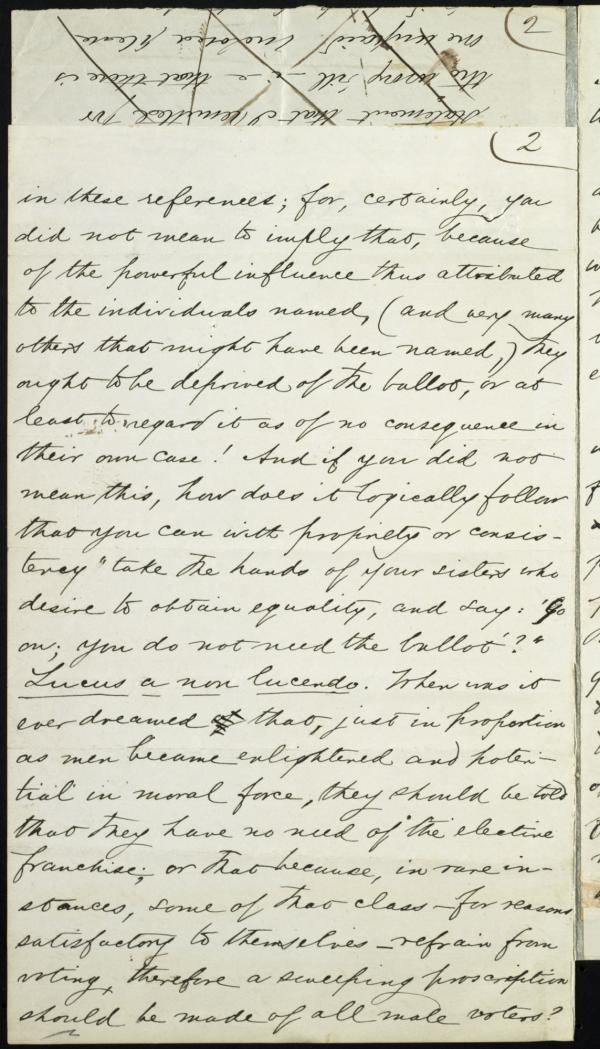 2
one unpaid. Enclosed please
the wrong bill - i-e that there is
statement that I remitted for
2
in these references; for, certainly, you
did not mean to imply that, because
of the powerful influence thus attributed
to the individuals named, (and very many
others that might have been named,) they
ought to be deprived of the ballot, or at
least to regard it as of no consequence in
their own case! And if you did not
mean this, how does it logically follow
that you can with propriety or consis-
tency "take the hands of your sisters who
desire to obtain equality, and say: 'Go
on; you do not need the ballot'?"
Lucus a non lucendo. When was it
ever dreamed that, just in proportion
as men became enlightened and poten-
tial in moral force, they should be told
that they have no need of the elective
franchise; or that because, in rare in-
stances, some of that class - for reasons
satisfactory to themselves - refrain from
voting, therefore a sweeping proscription
should be made of all male voters?